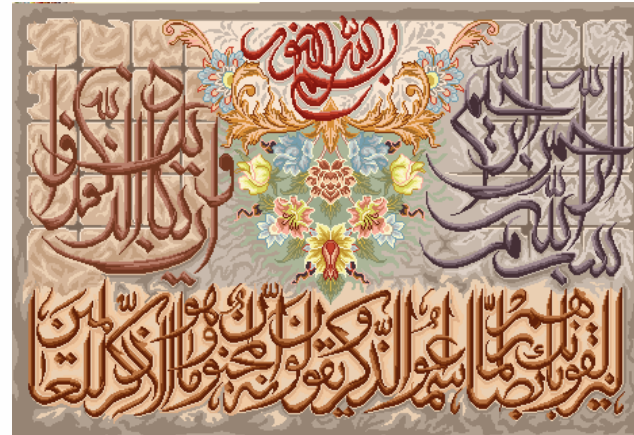 بسم الله النور
بسم الله الرحمن الرحيم
وإن يكاد الذين كفروا
ليزلقونك بأبصارهم لما سمعوا الذكر ويقولون إنه لمجنون وما هو إلا ذكر للعالمين